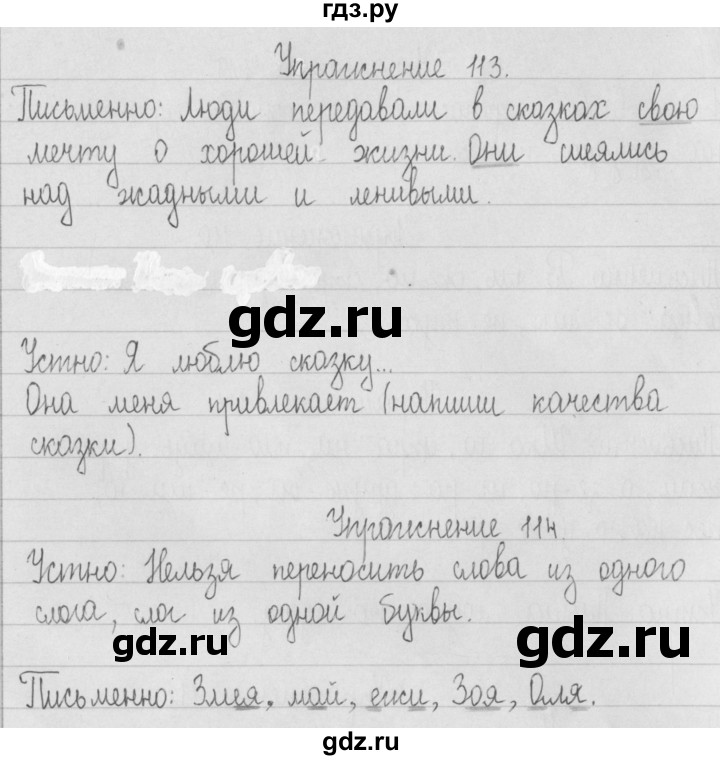 гдз.ру
Упражнение 113.
Письменно: Люди передавали в сказках свою
мечту о хорошей жизни. Они смеялись
над жадными и ленивыми.
gdz.ru
Устно: Я люблю сказку...
Она меня привлекает (напиши качества
сказки).
Упражнение 114
Устно: Нельзя переносить слова из одного
слога, слог из одной буквы.
gdz.ru
gdz.ru
Письменно: Змея, май, ежи, Зоя, Оля.
gdz.ru